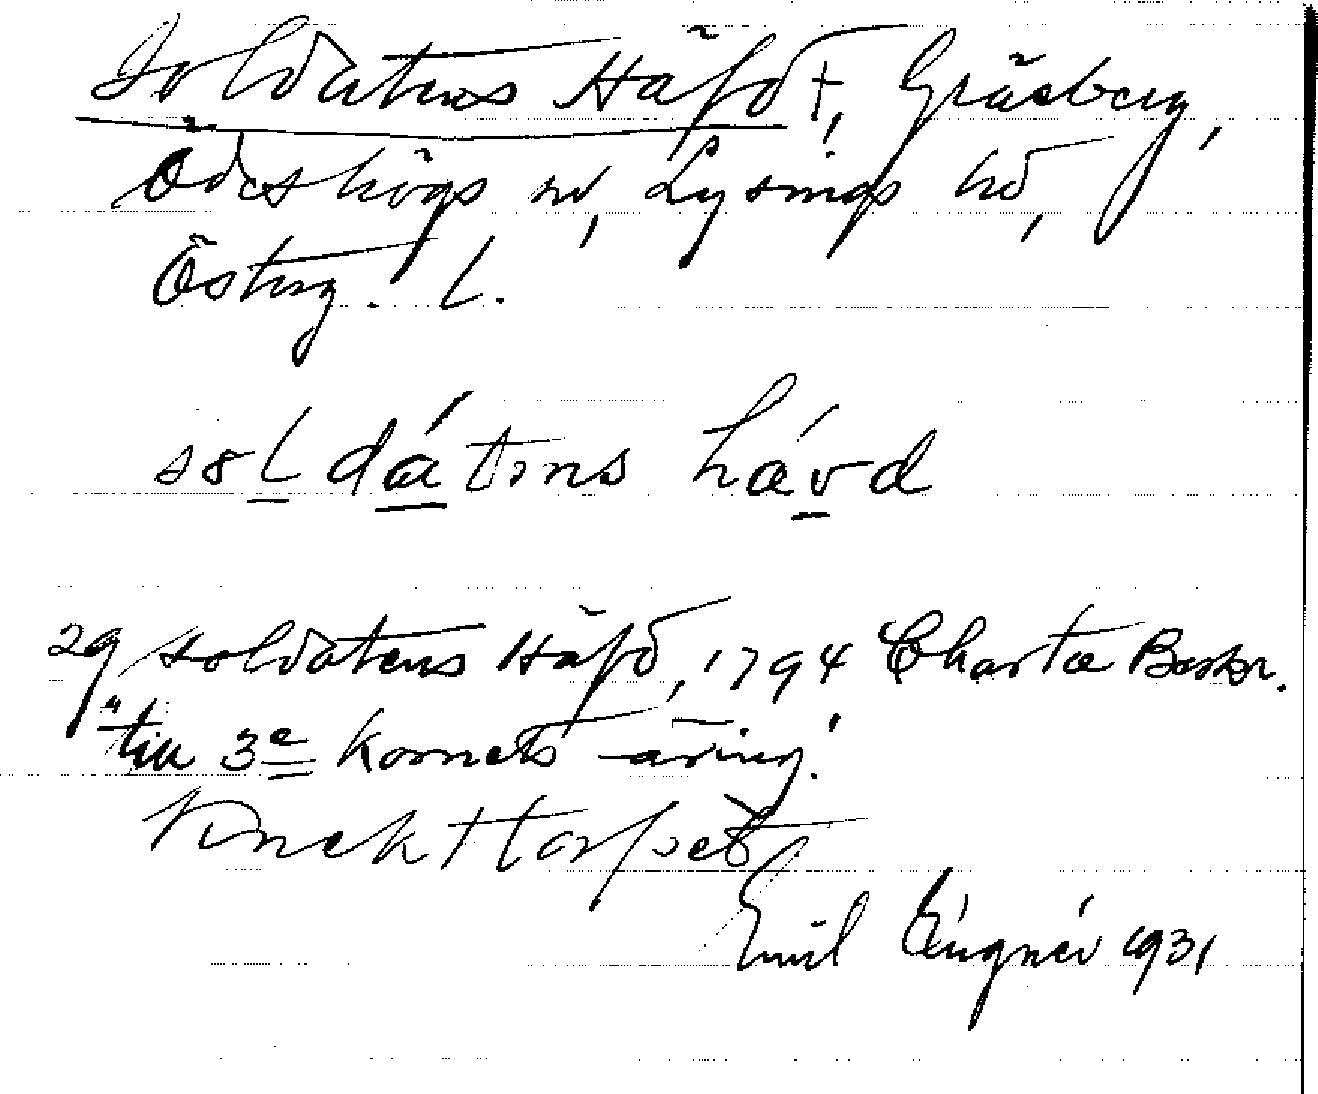 Soldatens Häfd †, Gräsberg,
Ödeshögs sn, Lysings hd,
Österg. l.
soldátəns hávd
29 soldatens Häfd, 1794 Charta Beskr.
till 3e kornets äring!
Knekttorpet
Emil Lingnér 1931